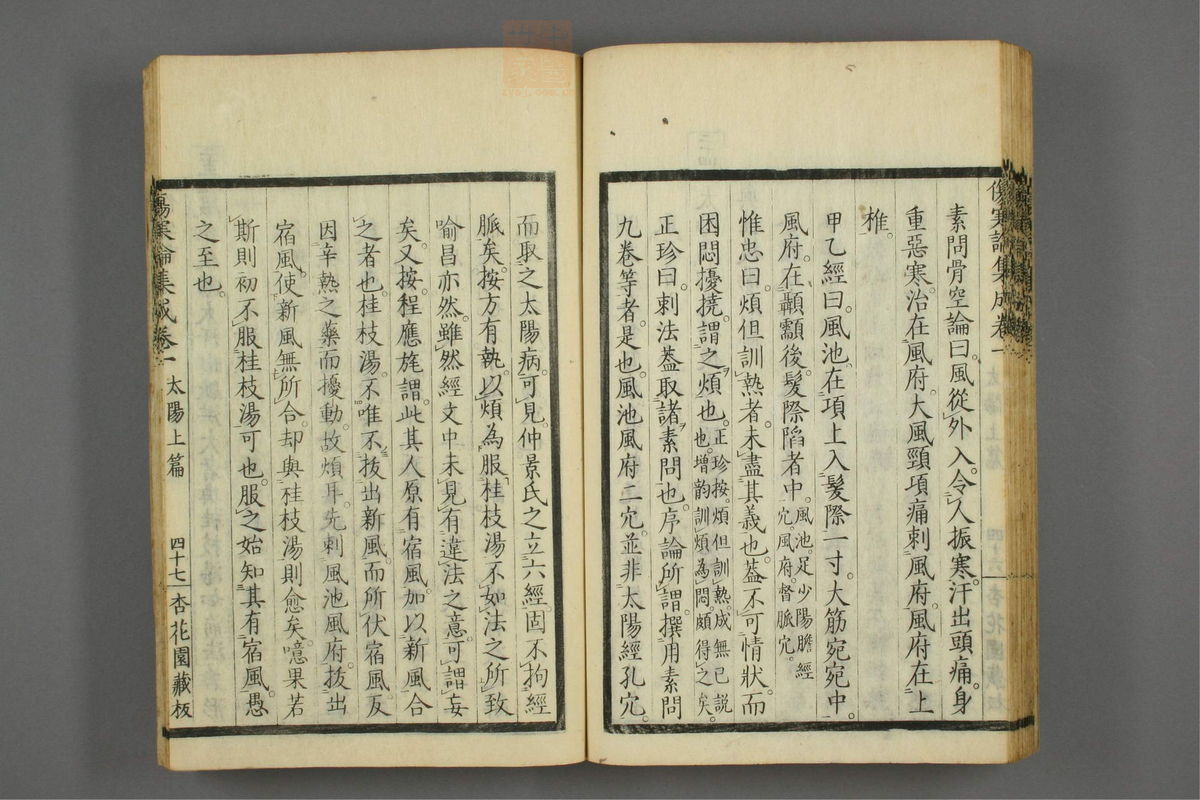 傷寒論集成卷一
素問骨空論曰。風從外入。令人振寒。汗出頭痛。身
重惡寒。治在風府。大風頸項痛。刺風府。風府在上
椎。
甲乙經曰。風池。在項上入髮際一寸。大筋宛宛中。
風府。在顳顬後。髮際陷者中。風池。足少陽膽經穴。風府。督脈穴。
惟忠曰。煩但訓熱者。未盡其義也。蓋不可情狀。而
困悶擾撓。謂之煩也。正珍按。煩但訓熱。成無己說也。增韵訓煩為悶。頗得之矣。
正珍曰。刺法蓋取諸素問也。序論所謂撰用素問
九卷等者。是也。風池風府二穴。並非太陽經孔穴。
而取之太陽病。可見仲景氏之立六經。固不拘經
脈矣。按方有執。以煩為服桂枝湯不如法之所致。
喻昌亦然。雖然經文中未見有違法之意。可謂妄
矣。又按。程應旄謂。此其人原有宿風。加以新風合
之者也。桂枝湯。不唯不拔出新風。而所伏宿風。反
因辛熱之藥。而擾動。故煩耳。先刺風池風府。拔出
宿風。使新風無所合。却與桂枝湯則愈矣。噫果若
斯則初不服桂枝湯可也。服之始知其有宿風。愚
之至也。
傷寒論集成卷一
太陽上篇
四十七
杏花園藏板